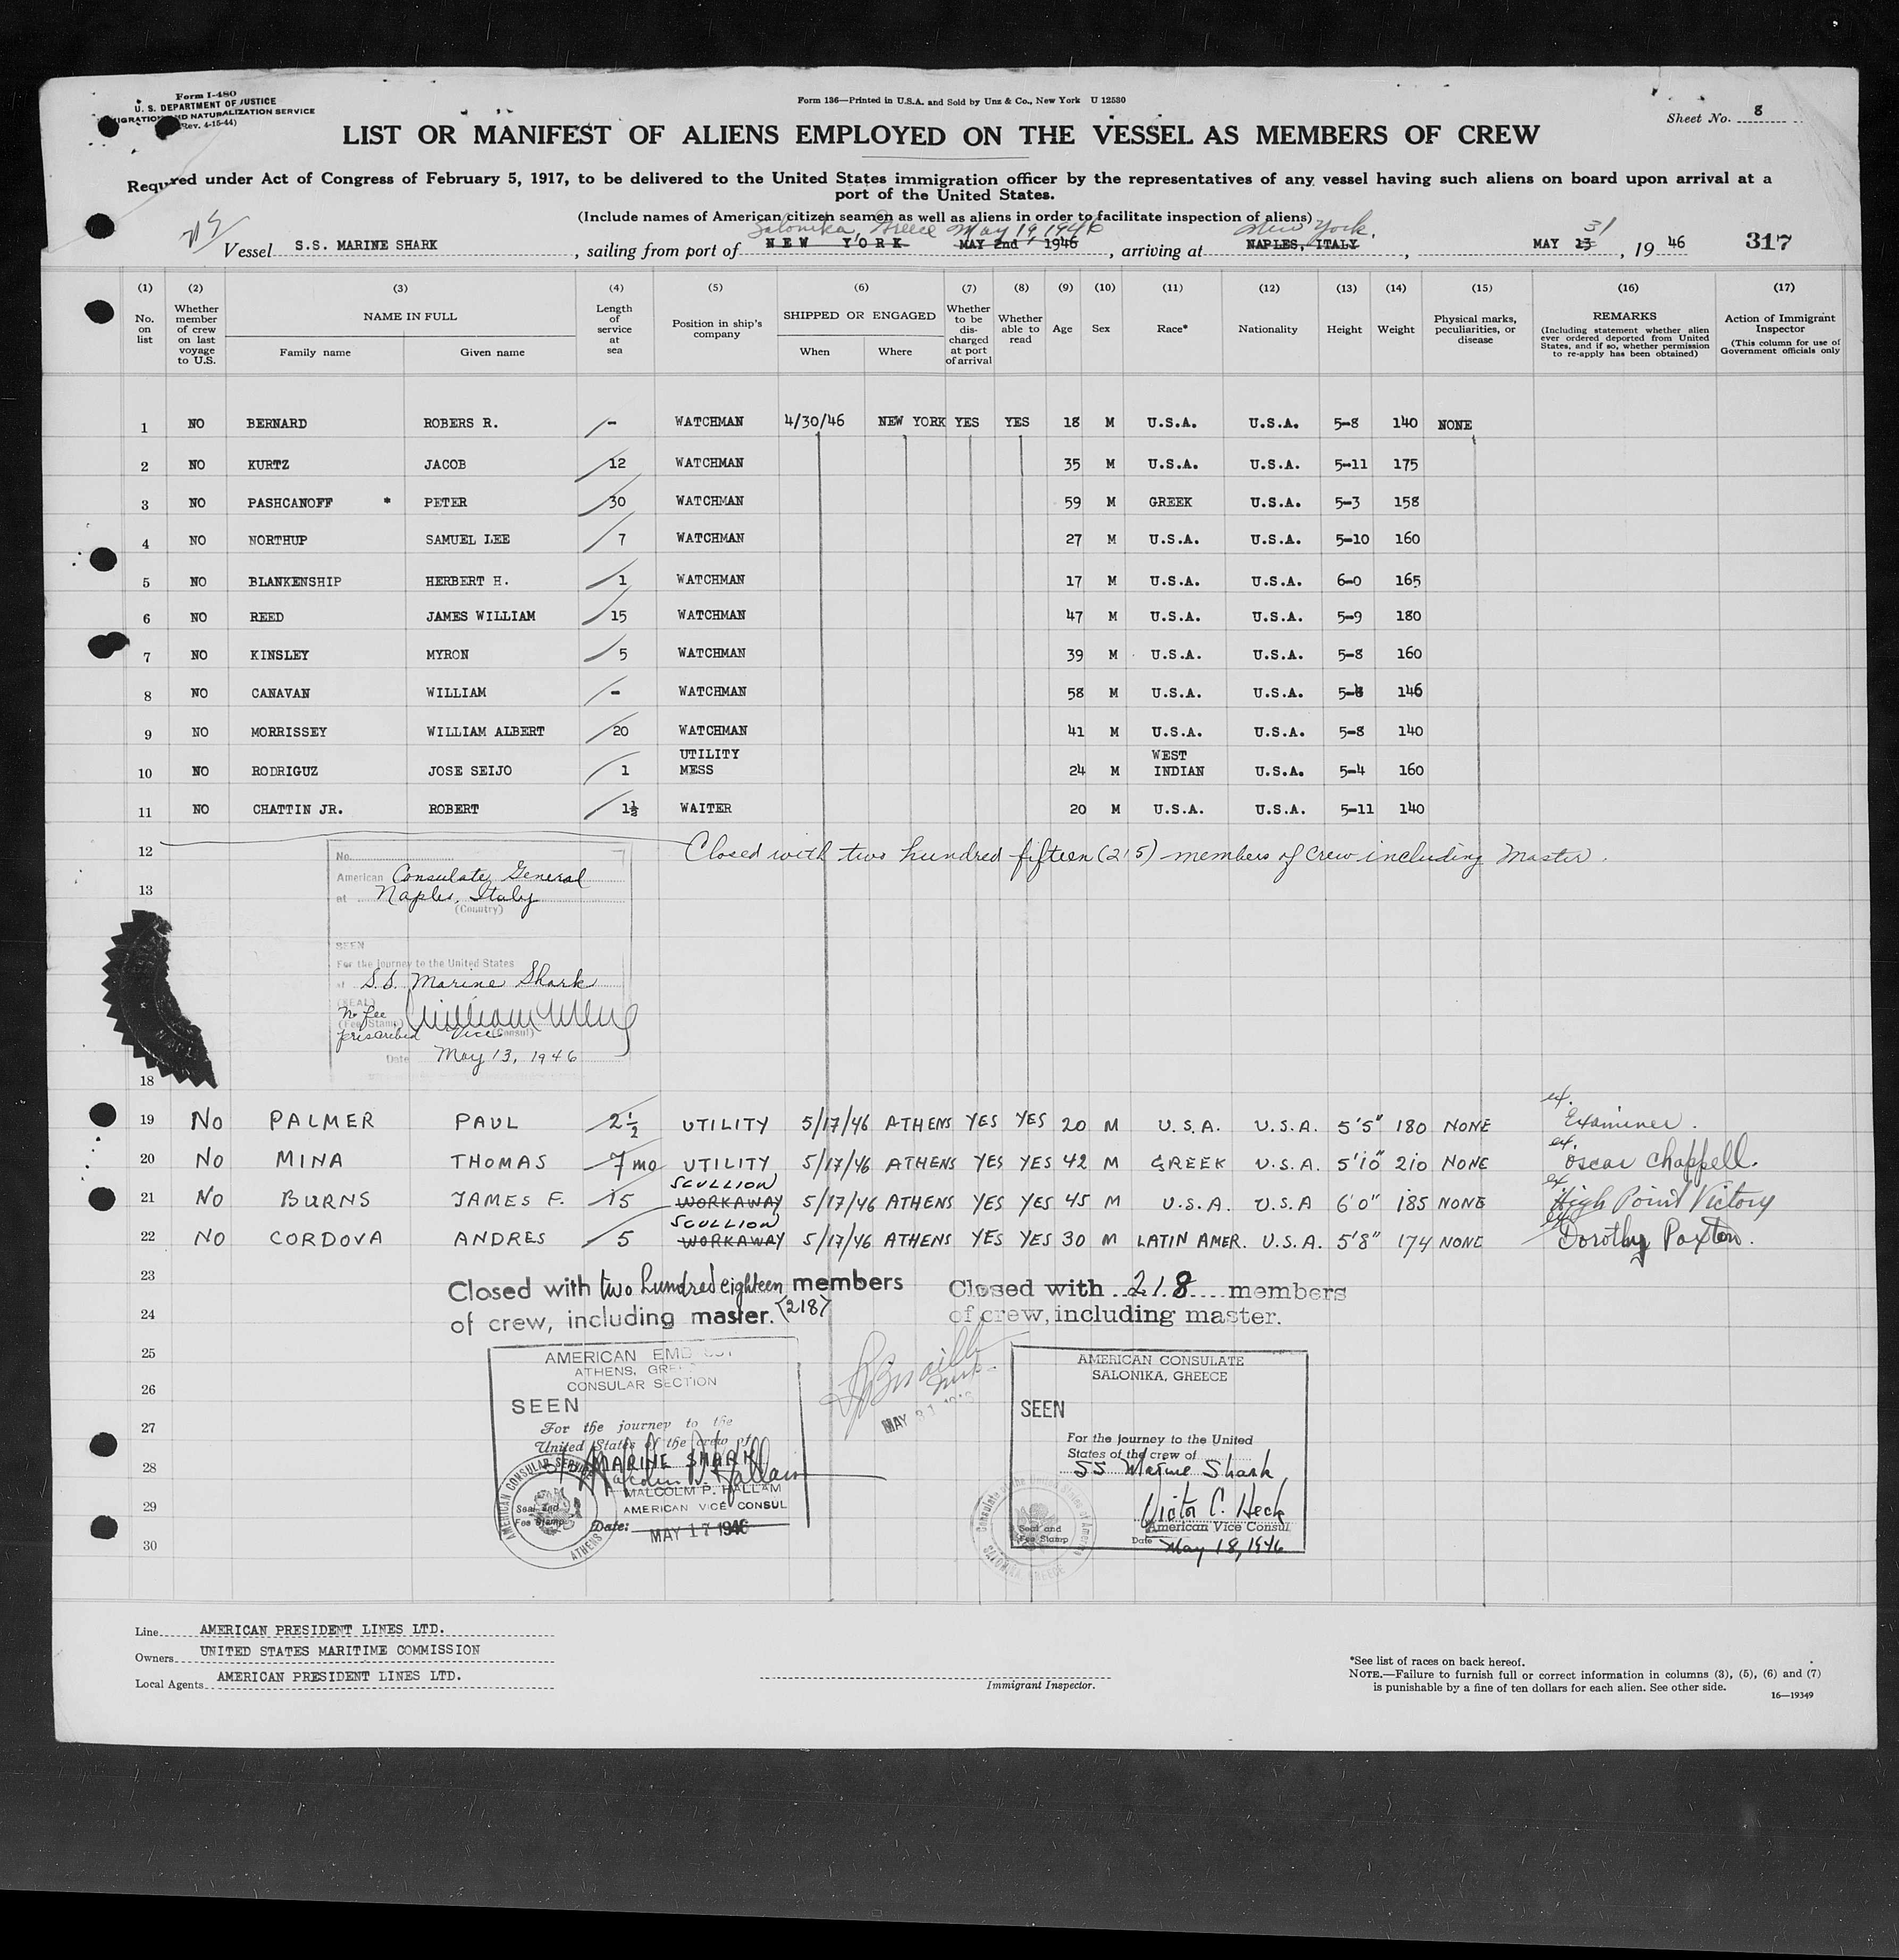 Form I-480
U. S. DEPARTMENT OF JUSTICE
IMMIGRATION AND NATURALIZATION SERVICE
(Rev. 4-15-44)
Form 136—Printed in U.S.A. and Sold by Unz & Co., New York U 12530
Sheet No. 8
LIST OR MANIFEST OF ALIENS EMPLOYED ON THE VESSEL AS MEMBERS OF CREW
Required under Act of Congress of February 5, 1917, to be delivered to the United States immigration officer by the representatives of any vessel having such aliens on board upon arrival at a
port of the United States.
(Include names of American citizen seamen as well as aliens in order to facilitate inspection of aliens)
Salonika, Greece May 19 1946 New York. 31
Vessel S.S. MARINE SHARK, sailing from port of NEW YORK MAY 2nd, 1946, arriving at NAPLES, ITALY, MAY 13, 19 46 317
(1) (2) (3) (4) (5) (6) (7) (8) (9) (10) (11) (12) (13) (14) (15) (16) (17)
No. on list
Whether member of crew on last voyage to U.S.
NAME IN FULL
Family name Given name
Length of service at sea
Position in ship's company
SHIPPED OR ENGAGED
When Where
Whether to be discharged at port of arrival
Whether able to read
Age Sex Race* Nationality Height Weight
Physical marks, peculiarities, or disease
REMARKS
(Including statement whether alien ever ordered deported from United States, and if so, whether permission to re-apply has been obtained)
Action of Immigrant Inspector
(This column for use of Government officials only
1 NO BERNARD ROBERS R. - WATCHMAN 4/30/46 NEW YORK YES YES 18 M U.S.A. U.S.A. 5-8 140 NONE
2 NO KURTZ JACOB 12 WATCHMAN 35 M U.S.A. U.S.A. 5-11 175
3 NO PASHCANOFF * PETER 30 WATCHMAN 59 M GREEK U.S.A. 5-3 158
4 NO NORTHUP SAMUEL LEE 7 WATCHMAN 27 M U.S.A. U.S.A. 5-10 160
5 NO BLANKENSHIP HERBERT H. 1 WATCHMAN 17 M U.S.A. U.S.A. 6-0 165
6 NO REED JAMES WILLIAM 15 WATCHMAN 47 M U.S.A. U.S.A. 5-9 180
7 NO KINSLEY MYRON 5 WATCHMAN 39 M U.S.A. U.S.A. 5-8 160
8 NO CANAVAN WILLIAM - WATCHMAN 58 M U.S.A. U.S.A. 146
9 NO MORRISSEY WILLIAM ALBERT 20 WATCHMAN 41 M U.S.A. U.S.A. 5-8 140
10 NO RODRIGUZ JOSE SEIJO 1 UTILITY MESS 24 M WEST INDIAN U.S.A. 5-4 160
11 NO CHATTIN JR. ROBERT 1½ WAITER 20 M U.S.A. U.S.A. 5-11 140
12 Closed with two hundred fifteen (215) members of crew including Master.
13
No.
American Consulate General
at Naples, Italy
(Country)
SEEN
For the journey to the United States
of S.S. Marine Shark
(SEAL)
No fee
(Fee Stamp)
prescribed Vice (Consul)
Date May 13, 1946
18
19 NO PALMER PAUL 2½ UTILITY 5/17/46 ATHENS YES YES 20 M U.S.A. U.S.A. 5'5" 180 NONE ex. Examiner.
20 NO MINA THOMAS 7 mo UTILITY 5/17/46 ATHENS YES YES 42 M GREEK U.S.A. 5'10" 210 NONE ex. Oscar Chappell.
21 NO BURNS JAMES F. 15 SCULLION WORKAWAY 5/17/46 ATHENS YES YES 45 M U.S.A. U.S.A 6'0" 185 NONE ex High Point Victory
22 NO CORDOVA ANDRES 5 SCULLION WORKAWAY 5/17/46 ATHENS YES YES 30 M LATIN AMER. U.S.A. 5'8" 174 NONE ex Dorothy Paxton.
23 Closed with two hundred eighteen members Closed with 218 members
24 of crew, including master. (218) of crew, including master.
25
26
27
28
29
30
AMERICAN EMBASSY
ATHENS, GREECE
CONSULAR SECTION
SEEN
For the journey to the
United States of the crew of
MARINE SHARK
Malcolm P. Hallam
MALCOLM P. HALLAM
AMERICAN VICE CONSUL
Date: MAY 17 1946
AMERICAN CONSULAR SERVICE
Seal and
Fee Stamp
ATHENS
MAY 31 1946
AMERICAN CONSULATE
SALONIKA, GREECE
SEEN
For the journey to the United
States of the crew of
SS Marine Shark
Victor C. Heck
American Vice Consul
Date May 18, 1946
Seal and
Fee Stamp
Consulate of the United States of America
SALONIKA, GREECE
Line AMERICAN PRESIDENT LINES LTD.
Owners UNITED STATES MARITIME COMMISSION
Local Agents AMERICAN PRESIDENT LINES LTD.
Immigrant Inspector.
*See list of races on back hereof.
NOTE.—Failure to furnish full or correct information in columns (3), (5), (6) and (7)
is punishable by a fine of ten dollars for each alien. See other side.
16—19349